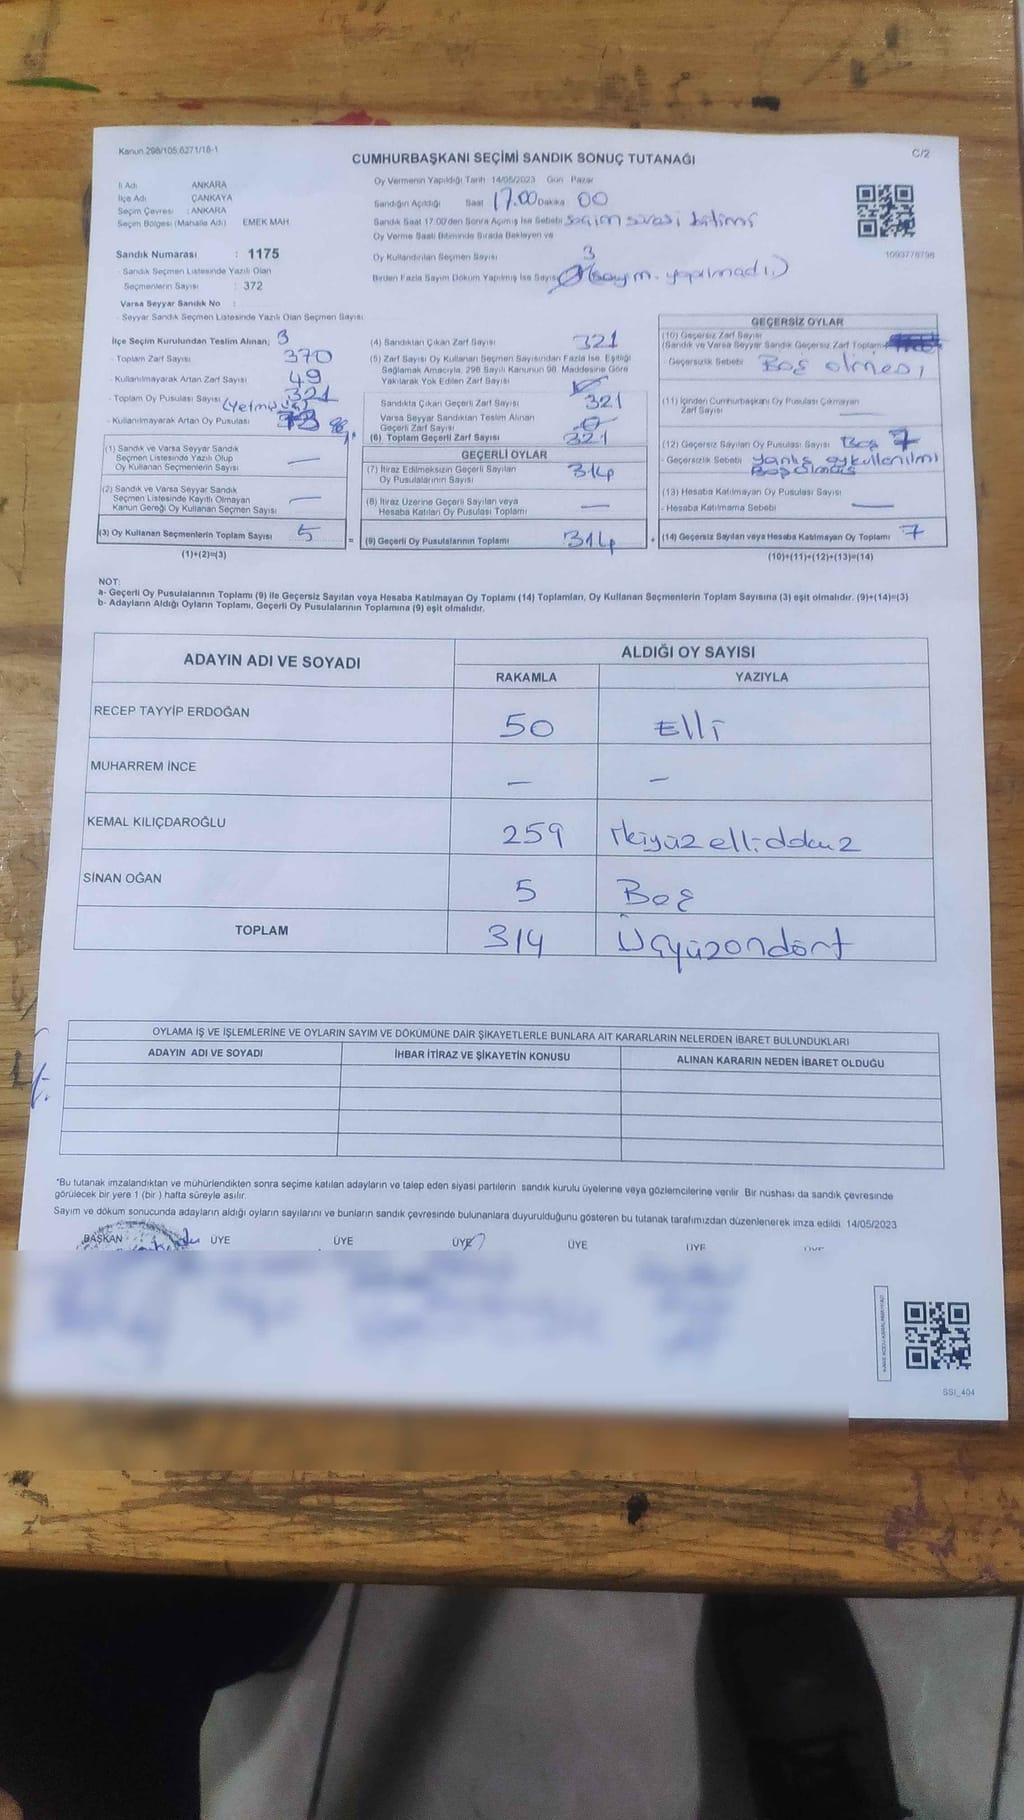 Kanun 298/105.6271/18-1
C/2
CUMHURBAŞKANI SEÇİMİ SANDIK SONUÇ TUTANAĞI
İl Adı ANKARA
İlçe Adı ÇANKAYA
Seçim Çevresi : ANKARA
Seçim Bölgesi (Mahalle Adı) EMEK MAH.
Oy Vermenin Yapıldığı Tarih 14/05/2023 Gün Pazar
Sandığın Açıldığı Saat 17.00 Dakika 00
Sandık Saat 17.00'den Sonra Açımış İse Sebebi seçim süresi bitimi
Oy Verme Saati Bitiminde Sırada Bekleyen ve
Oy Kullandırılan Seçmen Sayısı 3
Birden Fazla Sayım Döküm Yapılmış İse Sayısı (sayım. yapılmadı)
1093778798
Sandık Numarası : 1175
- Sandık Seçmen Listesinde Yazılı Olan
Seçmenlerin Sayısı : 372
Varsa Seyyar Sandık No :
- Seyyar Sandık Seçmen Listesinde Yazılı Olan Seçmen Sayısı:
İlçe Seçim Kurulundan Teslim Alınan; 3
- Toplam Zarf Sayısı 370
- Kullanılmayarak Artan Zarf Sayısı 49
- Toplam Oy Pusulası Sayısı 321
- Kullanılmayarak Artan Oy Pusulası
(1) Sandık ve Varsa Seyyar Sandık
Seçmen Listesinde Yazılı Olup
Oy Kullanan Seçmenlerin Sayısı —
(2) Sandık ve Varsa Seyyar Sandık
Seçmen Listesinde Kayıtlı Olmayan
Kanun Gereği Oy Kullanan Seçmen Sayısı —
(3) Oy Kullanan Seçmenlerin Toplam Sayısı 5
(1)+(2)=(3)
(4) Sandıktan Çıkan Zarf Sayısı 321
(5) Zarf Sayısı Oy Kullanan Seçmen Sayısından Fazla İse, Eşitliği
Sağlamak Amacıyla, 298 Sayılı Kanunun 98. Maddesine Göre
Yakılarak Yok Edilen Zarf Sayısı
Sandıkta Çıkan Geçerli Zarf Sayısı 321
Varsa Seyyar Sandıktan Teslim Alınan
Geçerli Zarf Sayısı
(6) Toplam Geçerli Zarf Sayısı 321
GEÇERLİ OYLAR
(7) İtiraz Edilmeksizin Geçerli Sayılan
Oy Pusulalarının Sayısı 314
(8) İtiraz Üzerine Geçerli Sayılan veya
Hesaba Katılan Oy Pusulası Toplamı —
= (9) Geçerli Oy Pusulalarının Toplamı 314
GEÇERSİZ OYLAR
(10) Geçersiz Zarf Sayısı
(Sandık ve Varsa Seyyar Sandık Geçersiz Zarf Toplamı)
- Geçersizlik Sebebi Boş olması
(11) İçinden Cumhurbaşkanı Oy Pusulası Çıkmayan
Zarf Sayısı —
(12) Geçersiz Sayılan Oy Pusulası Sayısı Boş 7
- Geçersizlik Sebebi yanlış oy kullenilmi
Boş olması
(13) Hesaba Katılmayan Oy Pusulası Sayısı
- Hesaba Katılmama Sebebi —
+ (14) Geçersiz Sayılan veya Hesaba Katılmayan Oy Toplamı 7
(10)+(11)+(12)+(13)=(14)
NOT:
a- Geçerli Oy Pusulalarının Toplamı (9) ile Geçersiz Sayılan veya Hesaba Katılmayan Oy Toplamı (14) Toplamları, Oy Kullanan Seçmenlerin Toplam Sayısına (3) eşit olmalıdır. (9)+(14)=(3)
b- Adayların Aldığı Oyların Toplamı, Geçerli Oy Pusulalarının Toplamına (9) eşit olmalıdır.
ADAYIN ADI VE SOYADI
ALDIĞI OY SAYISI
RAKAMLA YAZIYLA
RECEP TAYYİP ERDOĞAN 50 Elli
MUHARREM İNCE — —
KEMAL KILIÇDAROĞLU 259 İkiyüzellidokuz
SİNAN OĞAN 5 Beş
TOPLAM 314 Üçyüzondört
OYLAMA İŞ VE İŞLEMLERİNE VE OYLARIN SAYIM VE DÖKÜMÜNE DAİR ŞİKAYETLERLE BUNLARA AİT KARARLARIN NELERDEN İBARET BULUNDUKLARI
ADAYIN ADI VE SOYADI İHBAR İTİRAZ VE ŞİKAYETİN KONUSU ALINAN KARARIN NEDEN İBARET OLDUĞU
*Bu tutanak imzalandıktan ve mühürlendikten sonra seçime katılan adayların ve talep eden siyasi partilerin sandık kurulu üyelerine veya gözlemcilerine verilir. Bir nüshası da sandık çevresinde
görülecek bir yere 1 (bir) hafta süreyle asılır.
Sayım ve döküm sonucunda adayların aldığı oyların sayılarını ve bunların sandık çevresinde bulunanlara duyurulduğunu gösteren bu tutanak tarafımızdan düzenlenerek imza edildi. 14/05/2023
BAŞKAN ÜYE ÜYE ÜYE ÜYE ÜYE ÜYE
SSI_404